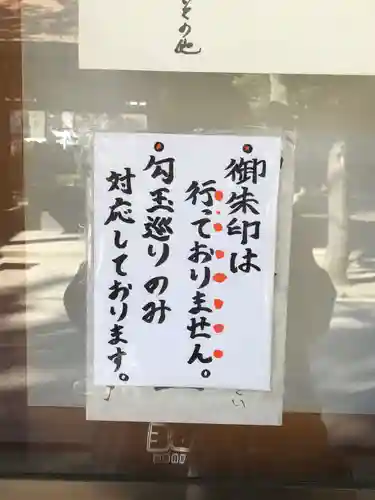 その他
御朱印は
行っておりません。
勾玉巡りのみ
対応しております。